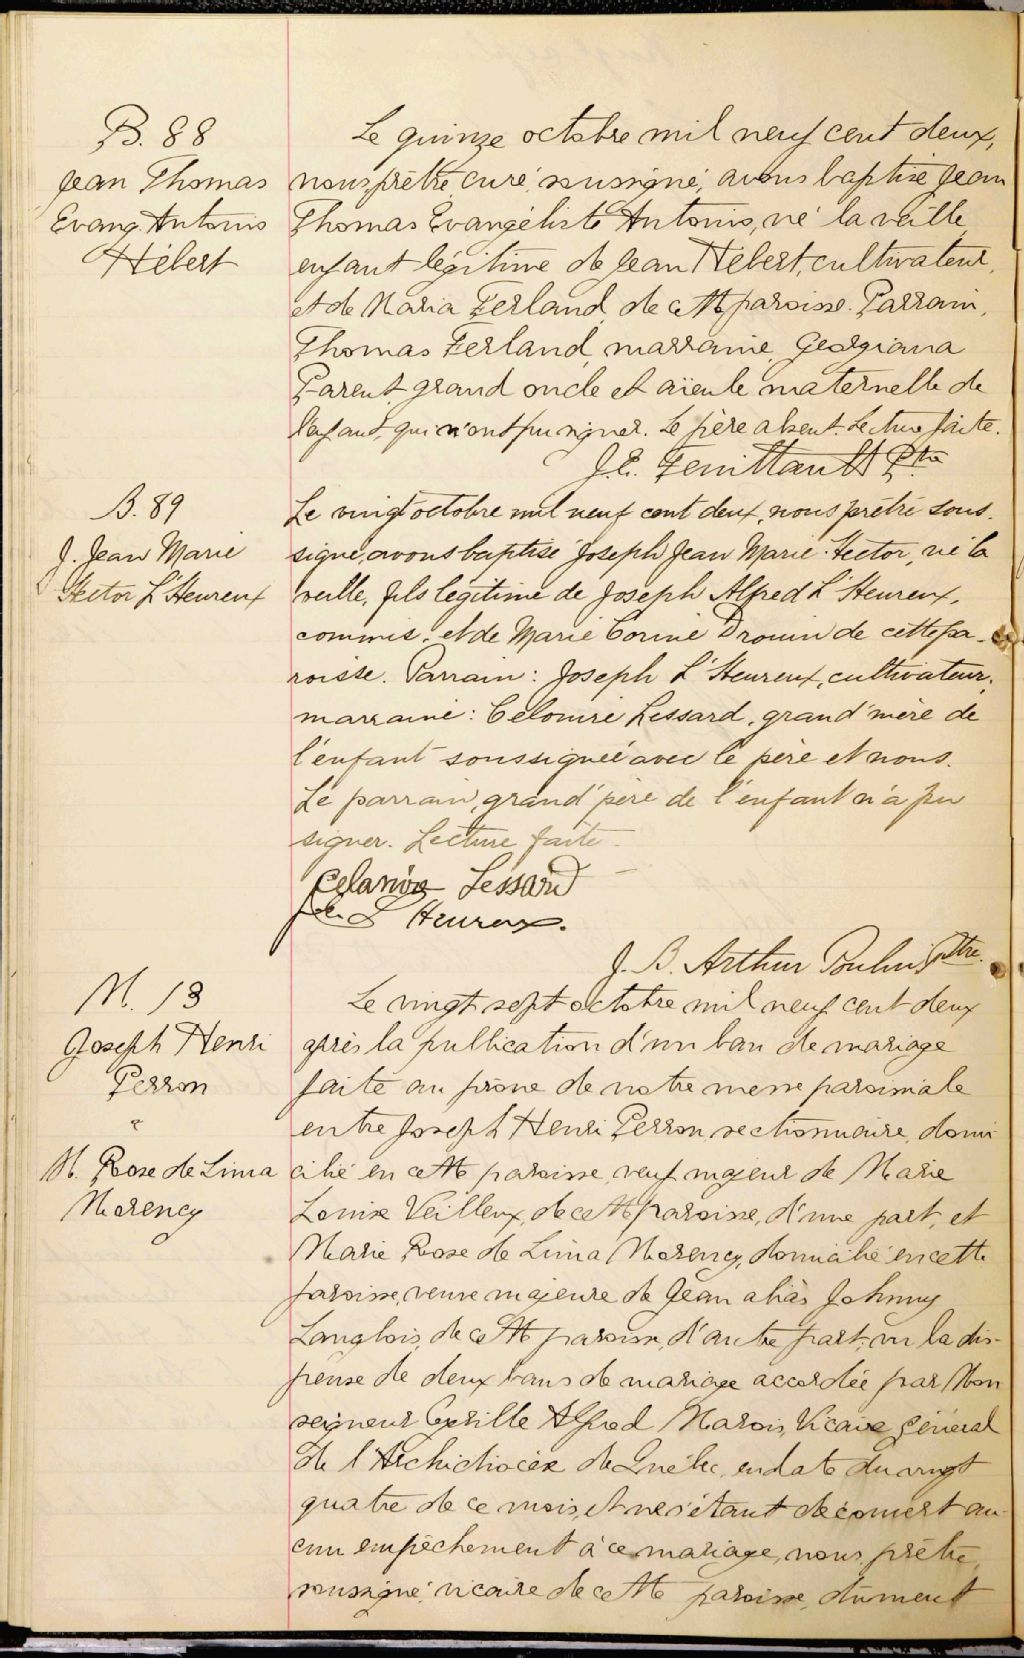 B. 88
Jean Thomas
Evang. Antonio
Hébert
Le quinze octobre mil neuf cent deux,
nous, prêtre curé, soussigné, avons baptisé Jean
Thomas Evangéliste Antonio, né la veille,
enfant légitime de Jean Hébert, cultivateur,
et de Maria Ferland, de cette paroisse. Parrain,
Thomas Ferland, marraine, Georgiana
Parent, grand oncle et aïeule maternelle de
l'enfant, qui n'ont pu signer. Le père absent. Lecture faite.
J. E. Feuiltault Ptre
B. 89
J. Jean Marie
Hector L'Heureux
Le vingt octobre mil neuf cent deux, nous prêtre sous-
signé, avons baptisé Joseph Jean Marie Hector, né la
veille, fils légitime de Joseph Alfred L'Heureux,
commis, et de Marie Corine Drouin de cette pa-
roisse. Parrain : Joseph L'Heureux, cultivateur;
marraine : Celouire Lessard, grand'mère de
l'enfant soussignée avec le père et nous.
Le parrain, grand'père de l'enfant n'a pu
signer. Lecture faite.
Lessard
L'Heureux.
J. B. Arthur Poulin Ptre.
M. 13
Joseph Henri
Perron
&
M. Rose de Lima
Morency
Le vingt sept octobre mil neuf cent deux
après la publication d'un ban de mariage
faite au prône de notre messe paroissiale
entre Joseph Henri Perron, sectionnaire, domi
cilié en cette paroisse, veuf majeur de Marie
Louise Veilleux, de cette paroisse, d'une part, et
Marie Rose de Lima Morency, domiciliée en cette
paroisse, veuve majeure de Jean aliàs Johnny
Langlois, de cette paroisse, d'autre part; vu la dis-
pense de deux bans de mariage accordée par Mon
seigneur Cyrille Alfred Marois, Vicaire général
de l'Archidiocèse de Québec, en date du vingt
quatre de ce mois, et ne s'étant découvert au-
cun empêchement à ce mariage, nous, prêtre,
soussigné, vicaire de cette paroisse, dûment